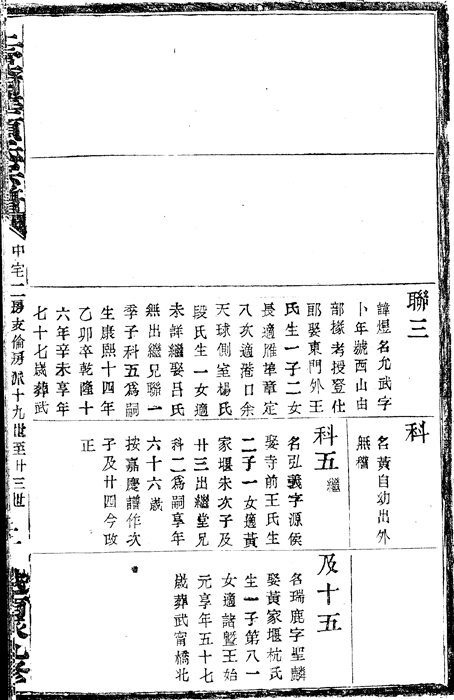 聯三
諱燈名允武字
卜年號西山由
部掾考授登仕
郎娶東門外王
氏生一子二女
長適雁埠章定
八次適蔭口余
天球側室楊氏
段氏生一女適
未詳繼娶呂氏
無出繼兄聯一
季子科五爲嗣
生康熙十四年
乙卯卒乾隆十
六年辛未享年
七十七歲葬武
科
名黃自幼出外
無稽
科五 繼
名弘義字源俟
娶寺前王氏生
二子一女適黃
家堰朱次子及
廿三出繼堂兄
科二爲嗣享年
六十六歲
按嘉慶譜作次
子及廿四今改
正
及十五
名瑞鹿字聖麟
娶黃家堰杭氏
生一子第八一
女適諸暨王始
元享年五十七
歲葬武甯橋北
中宅二房友倫房派十九世至廿三世